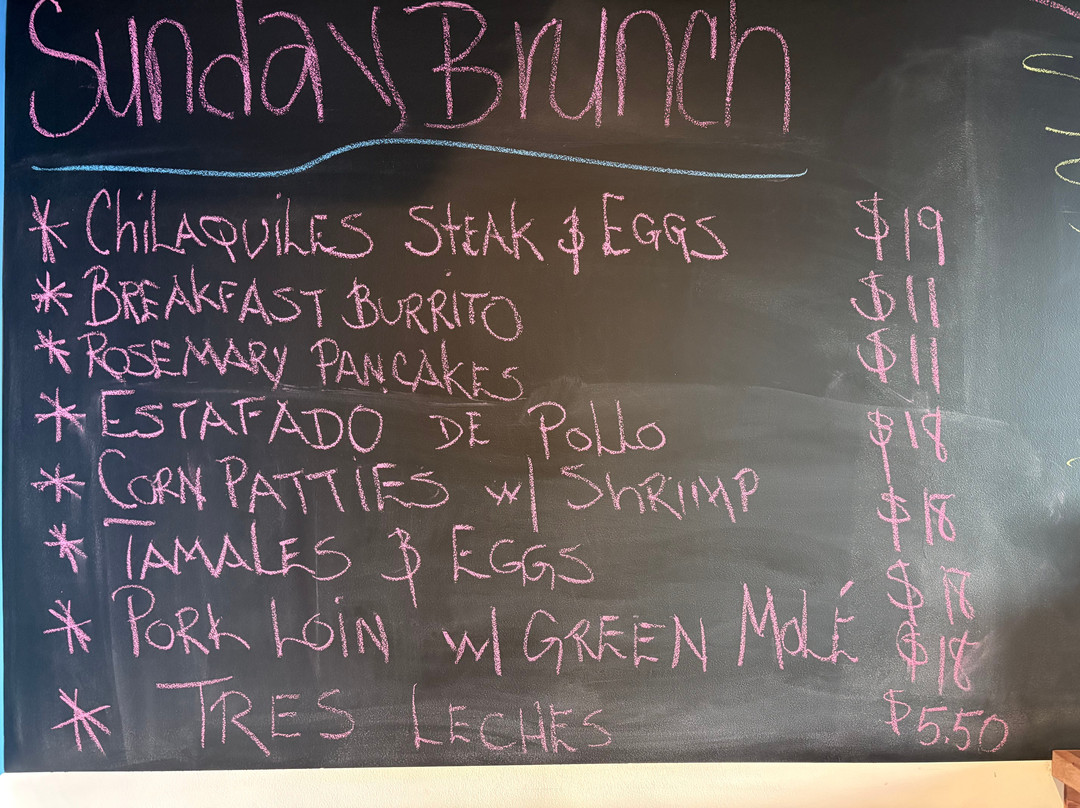 Sunday Brunch
* CHiLAQUiLES STEAK & EGGS $19
* BREAKFAST BURRITO $11
* ROSEMARY PANCAKES $11
* ESTAFADO DE Pollo $18
* CORN PATTiES w/ ShRIMP $18
* TAMALES & EGGS $
* PORK LOiN w/ GREEN MOLÉ $18
* TRES LECHES $5.50